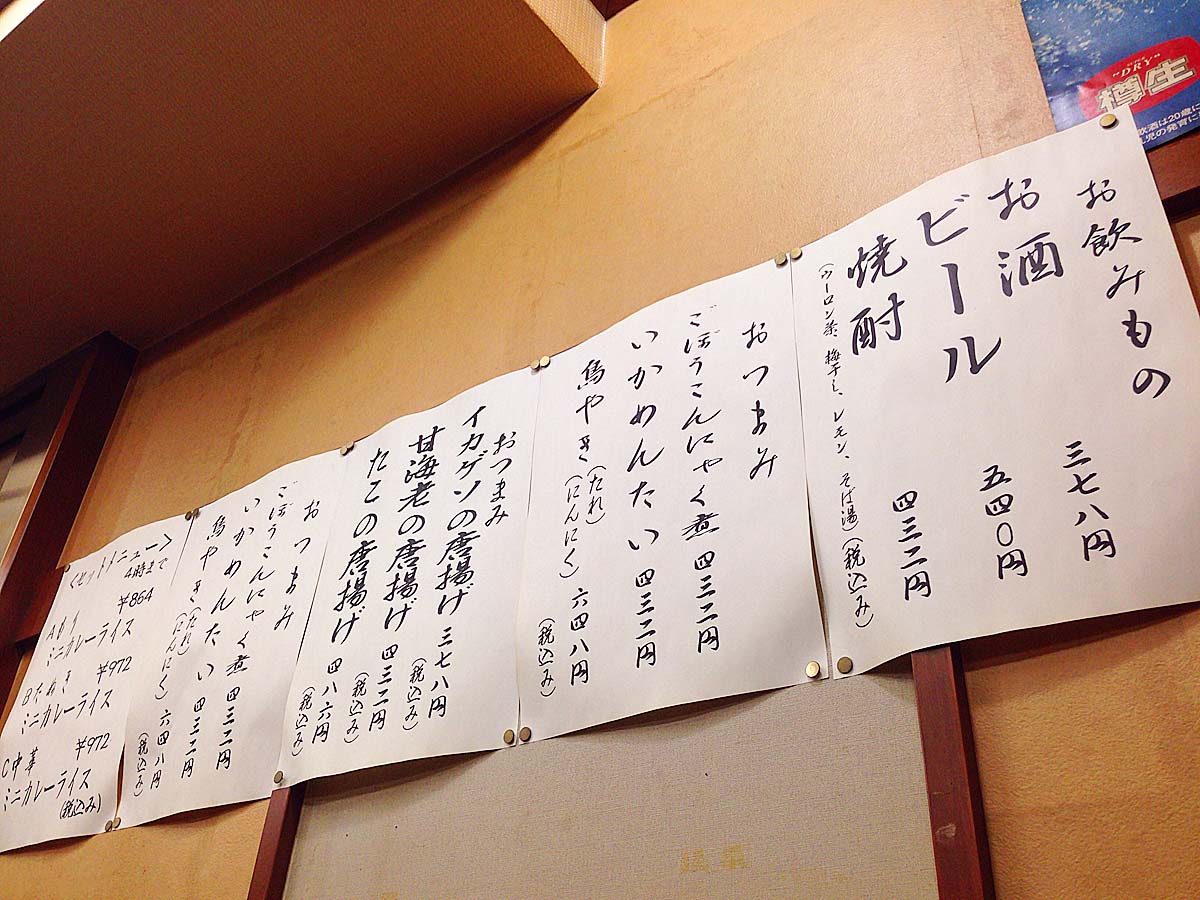 "DRY"
樽生
飲酒は20歳に
児の発育に
お飲みもの
お酒 三七八円
ビール 五四〇円
焼酎 四三二円
(ウーロン茶、梅干し、レモン、そば湯)(税込み)
おつまみ
ごぼうこんにゃく煮 四三二円
いかめんたい 四三二円
鳥やき(たれ)(にんにく) 六四八円
(税込み)
おつまみ
イカゲソの唐揚げ 三七八円
(税込み)
甘海老の唐揚げ 四三二円
(税込み)
たこの唐揚げ 四八六円
(税込み)
おつまみ
ごぼうこんにゃく煮 四三二円
いかめんたい 四三二円
鳥やき(たれ)(にんにく) 六四八円
(税込み)
<セットメニュー>
4時まで
¥864
Aもり
ミニカレーライス
¥972
Bたぬき
ミニカレーライス
¥972
C中華
ミニカレーライス
(税込み)